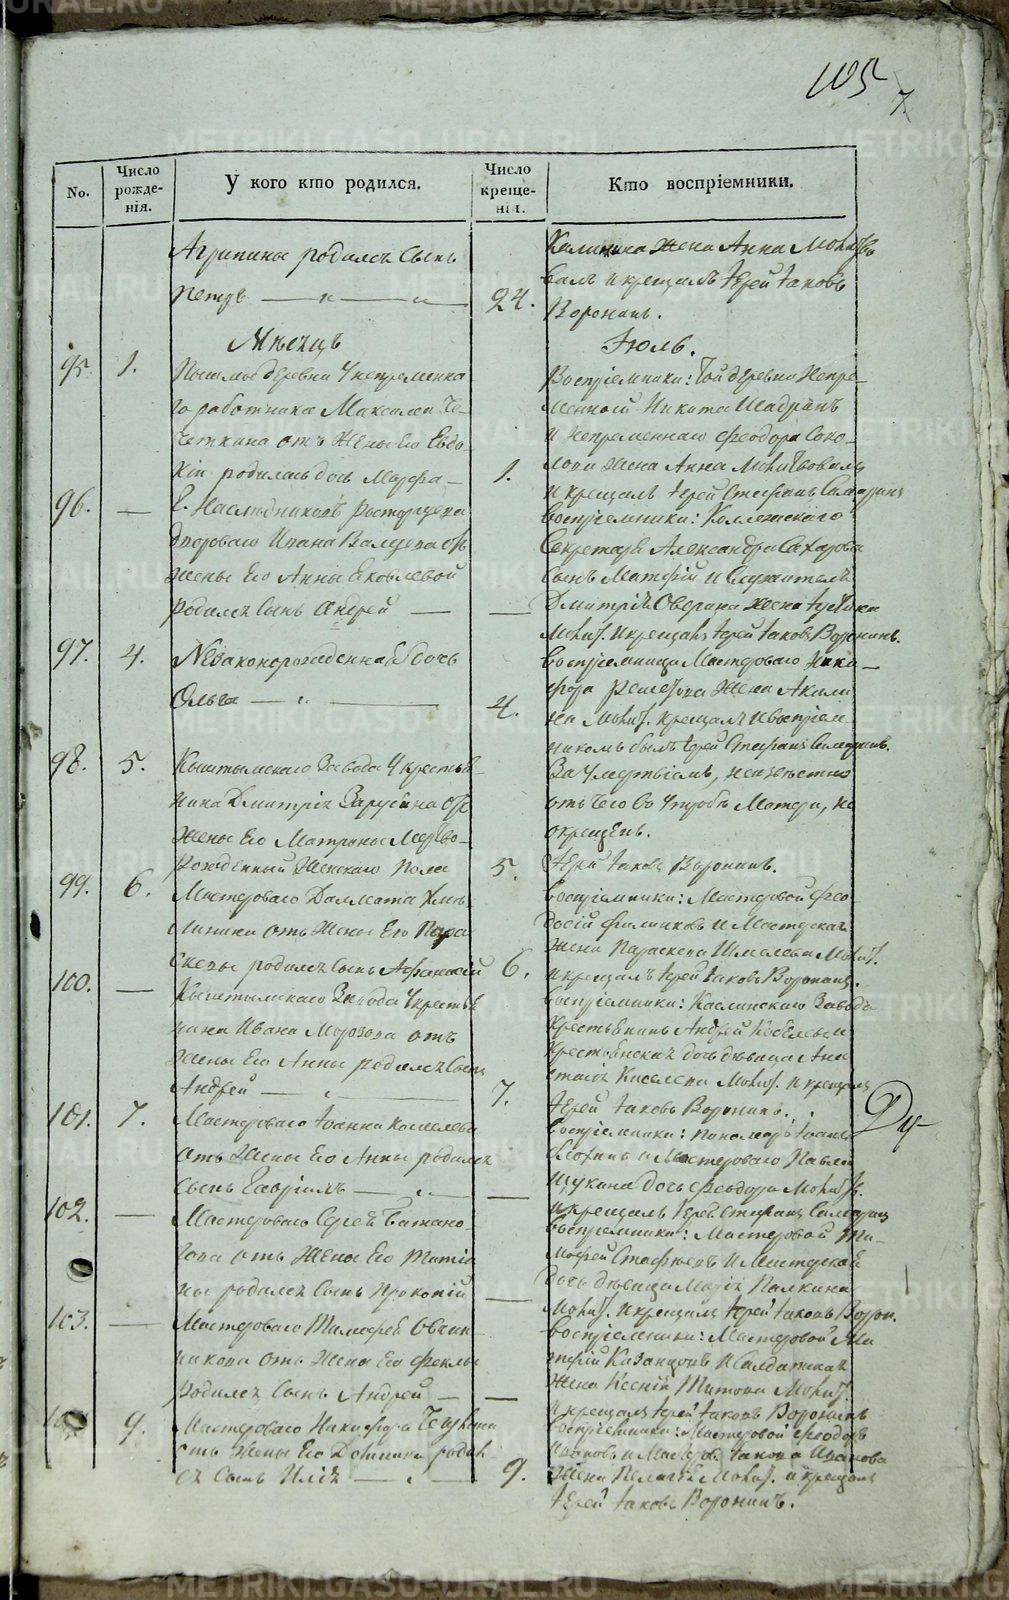 105
7
No.
Число рожде- нія.
У кого кто родился.
Число креще- нія.
Кто воспріемники.
Агрипины родился сынъ
Петръ
24.
жена Анна Молитв.
валъ и крещалъ Іерей Іаковъ
Воронинъ.
Мѣсяцъ
Іюль.
95.
1.
деревни у непременна
го работника Максима Че-
четкина отъ жены его Евдо-
кіи родилась дочь Марфа
1.
Воспріемники: той деревни Непре-
менной Никита Шадринъ
и непременнаго Феодора Соко-
лова жена Анна Молитвовалъ
и крещалъ Іерей Стефанъ
96.
Г. Наследниковъ Расторгуева
двороваго Ивана отъ
жены его Анны Яковлевой
родился сынъ Андрей
Воспріемники: Коллежскаго
Секретаря Александра Сахарова
сынъ Матфій и служителя
Дмитрія жена
Молит. и крещалъ Іерей Іаковъ Воронинъ.
97.
4.
Незаконорожденная дочь
Ольга
4.
Воспріемница Мастероваго Ники-
фора жена Акили
на Молит. крещалъ и воспріем
никомъ былъ Іерей Стефанъ
98.
5.
Кыштымскаго Завода у крестья-
нина Дмитрія Зарубина отъ
жены его Матрины мертво-
рожденный женскаго пола
5.
За умертвіемъ, неизвестно
отъ чего во утробе матери, не
окрещенъ.
Іерей Іаковъ Воронинъ.
99.
6.
Мастероваго Далмата
отъ жены его Пара
скевы родился сынъ Афанасій
6.
Воспріемники: Мастеровой Фео-
досій и Мастерская
жена Параскева Шмелева Молит.
и крещалъ Іерей Іаковъ Воронинъ.
100.
Кыштымскаго Завода у крестья
нина Ивана Морозова отъ
жены его Анны родился сынъ
Андрей
7.
Воспріемники: Каслинскаго Завода
Крестьянинъ Андрей и
крестьянская дочь девица Ана
стасія Киселева Молит. и крещалъ
Іерей Іаковъ Воронинъ.
101.
7.
Мастероваго Іоанна Кошелева
отъ жены его Анны родился
сынъ Гавріилъ
Воспріемники: пономарь Іоаннъ
и Мастероваго Павла
Щукина дочь Феодора Молитв.
и крещалъ Іерей Стефанъ
102.
Мастероваго Сергея
отъ жены его Татіа
ны родился сынъ Прокопій
Воспріемники: Мастеровой Ти-
мофей и Мастерская
дочь девица Марія Палкина
Молит. и крещалъ Іерей Іаковъ Ворон.
103.
Мастероваго Тимофея Овчин-
никова отъ жены его Феклы
родился сынъ Андрей
Воспріемники: Мастеровой Ма
тфій Казанцовъ и Салдатская
жена Ксенія Титова Молит.
и крещалъ Іерей Іаковъ Воронинъ
9.
Мастероваго Никифора
отъ жены его Домники родил
ся сынъ Илія
9.
Воспріемники: Мастеровой Феодоръ
Ивановъ и Мастер. Іакова Иванова
жена Пелагея Молит. и крещалъ
Іерей Іаковъ Воронинъ.
METRIKI.GASO-URAL.RU